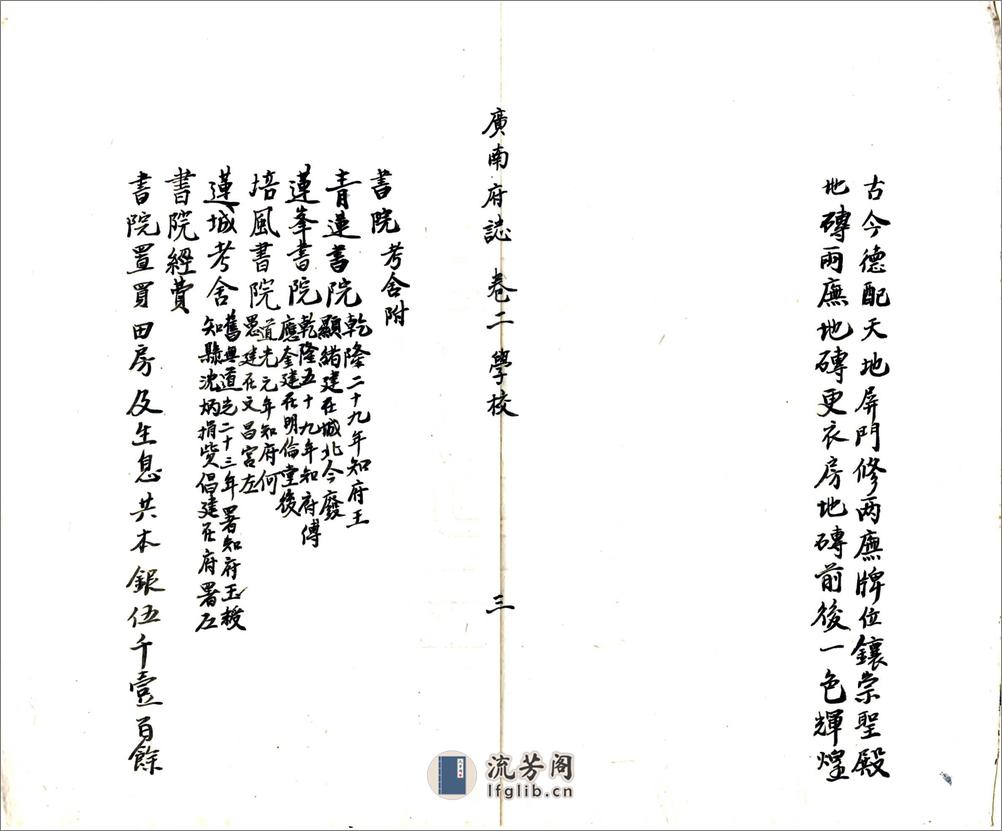 古今德配天地屏門修两廡牌位鑲崇聖殿
地磚兩廡地磚更衣房地磚前後一色輝煌
廣南府誌 卷二 學校 三
書院 考舍附
青蓮書院 乾隆二十九年知府王
顯緒建在城北今廢
蓮峯書院 乾隆五十九年知府傅
應奎建在明倫堂後
培風書院 道光元年知府何
愚建在文昌宮左
蓮城考舍 舊無道光二十三年署知府王
知縣沈炳捐貲倡建在府署左
書院經費
書院置買田房及生息共本銀伍千壹百餘
流芳阁
lfglib.cn